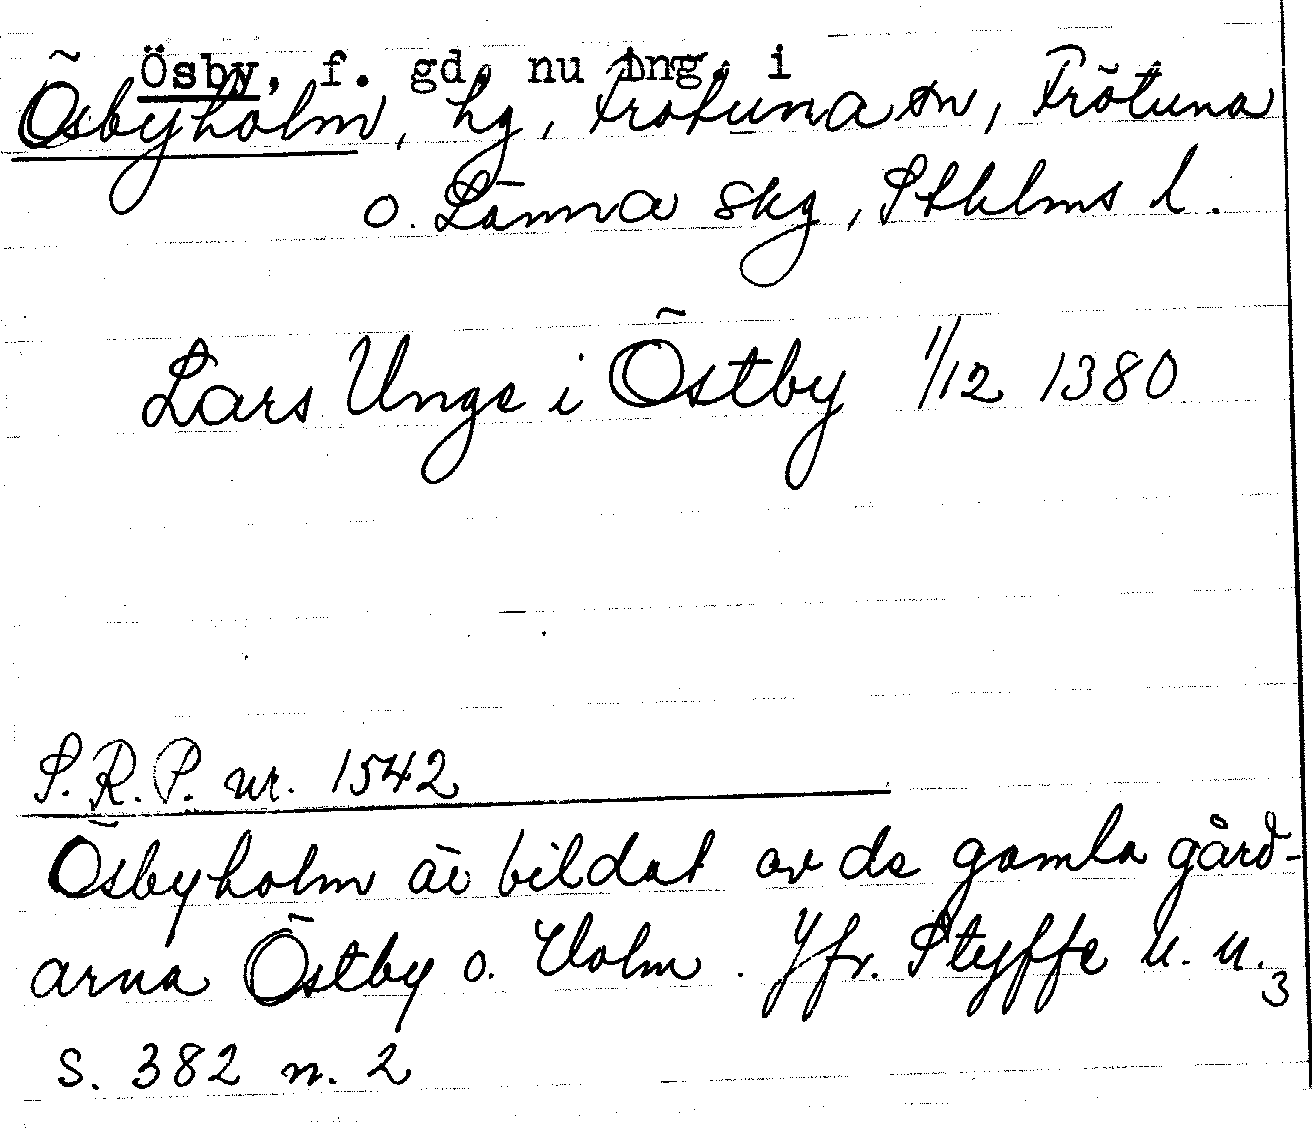 Ösby, f. gd, nu ing. i
Ösbyholm, hg, Frötuna sn, Frötuna
o. Länna skg, Sthlms l.
Lars Unge i Östby 1/12 1380
S.R.P. nr. 1542
Ösbyholm är bildat av de gamla gård-
arna Östby o. Holm. Jfr. Styffe U.U.3
s. 382 n. 2